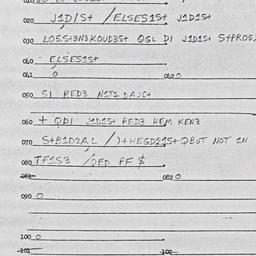 020 J1D1S+ / ELSES1S+ J1D1S+
030 LOS.S+3N3KOUD3S+ QGL D1 J1D1S+ S+PROS,
040 - ELSES1S+
041 0 042 0
050 S1 RED3 N1T2 DAJC+
060 + QD1 J1D1S+ RED3 HEM KEN3
070 S+B1D2A,L / )+HEGD21S+ QBUT NOT 1N
080 TF1S3 / QED PF $
081 082 0
090 0
100 0
101 102